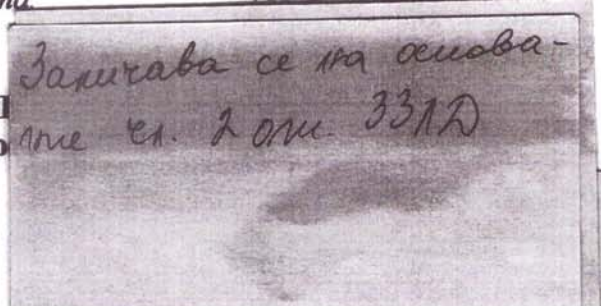 Заличава се на основа-
ние чл. 2 от ЗЗЛД